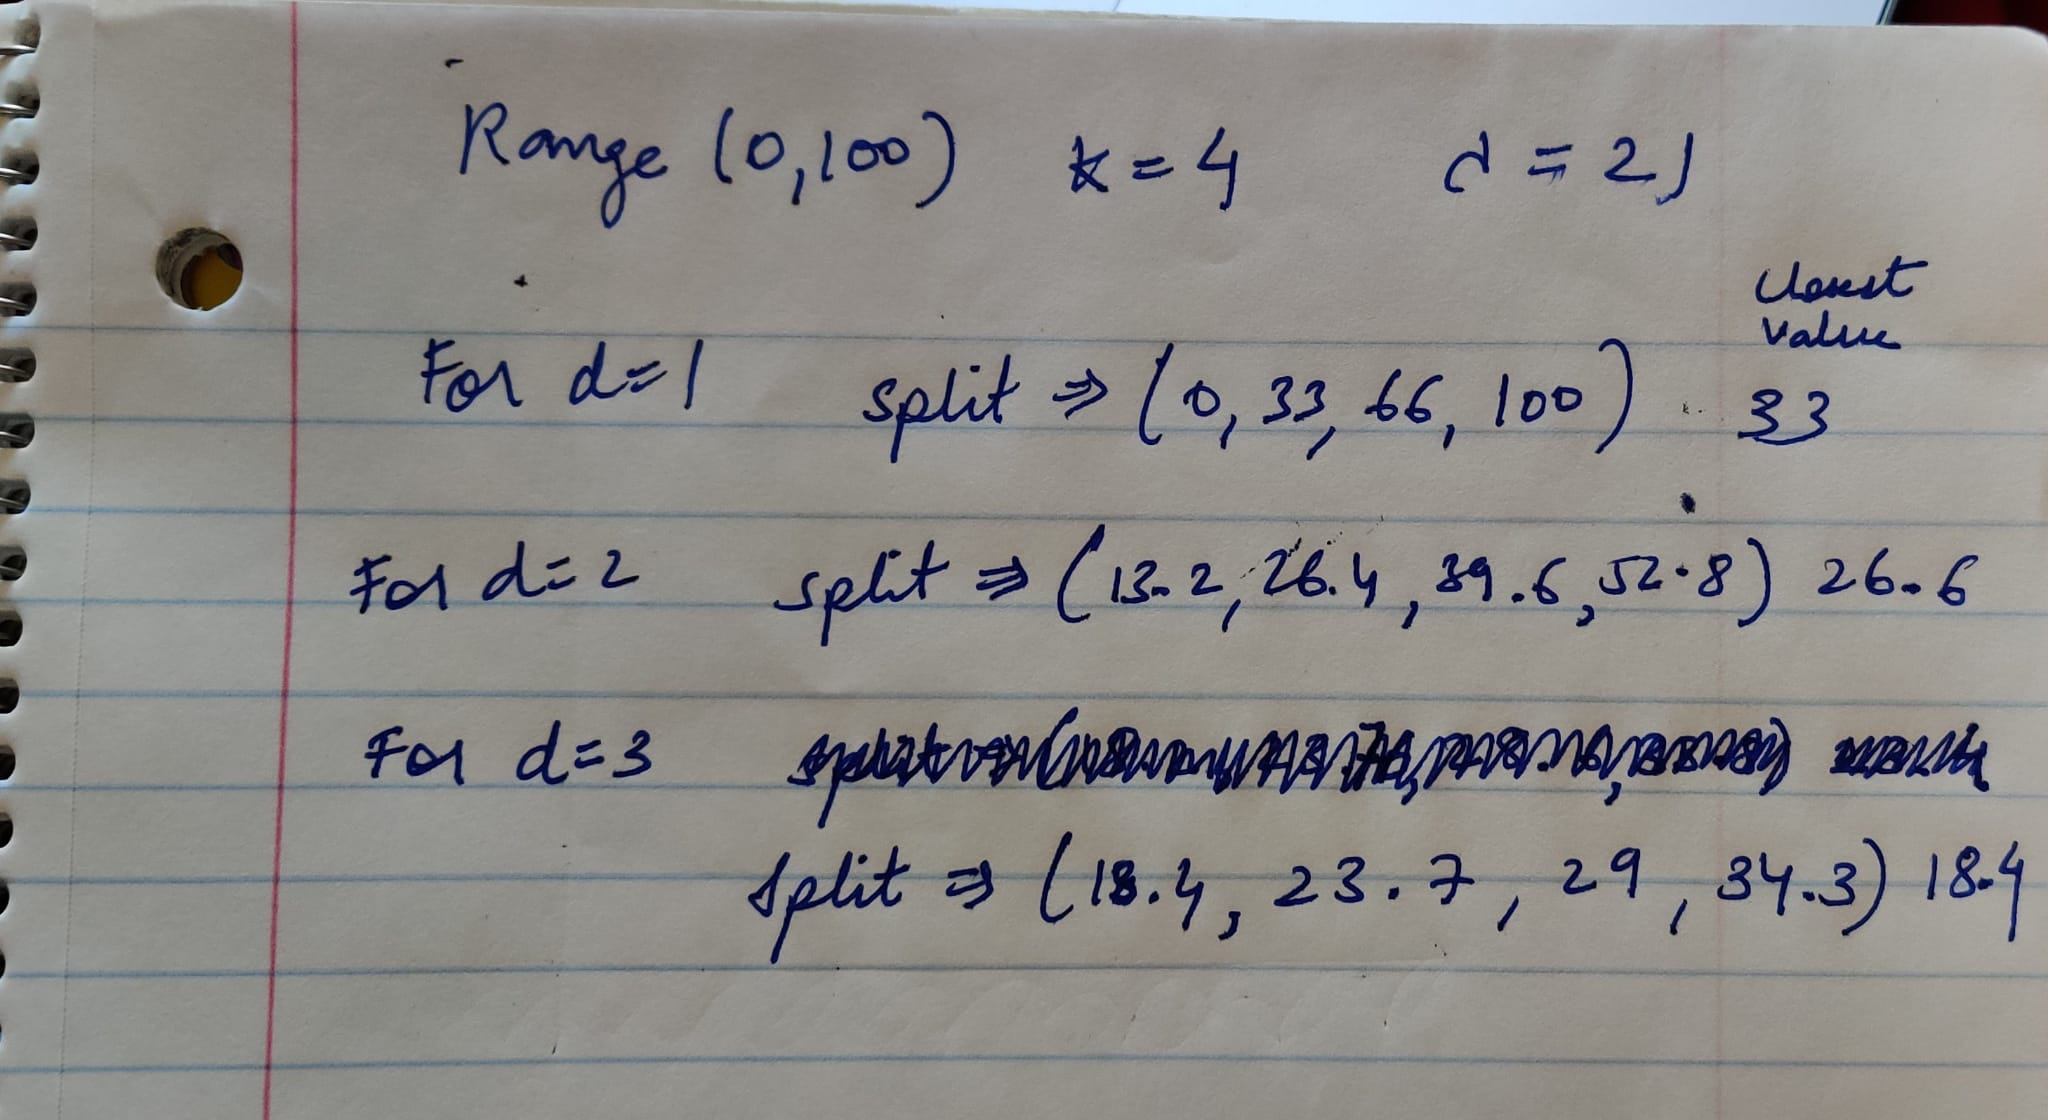 Range (0,100) k=4 d=21
Closest
Value
For d=1 split ⇒ (0, 33, 66, 100) 33
For d=2 split ⇒ (13.2, 26.4, 39.6, 52.8) 26.6
For d=3
split ⇒ (18.4, 23.7, 29, 34.3) 18.4